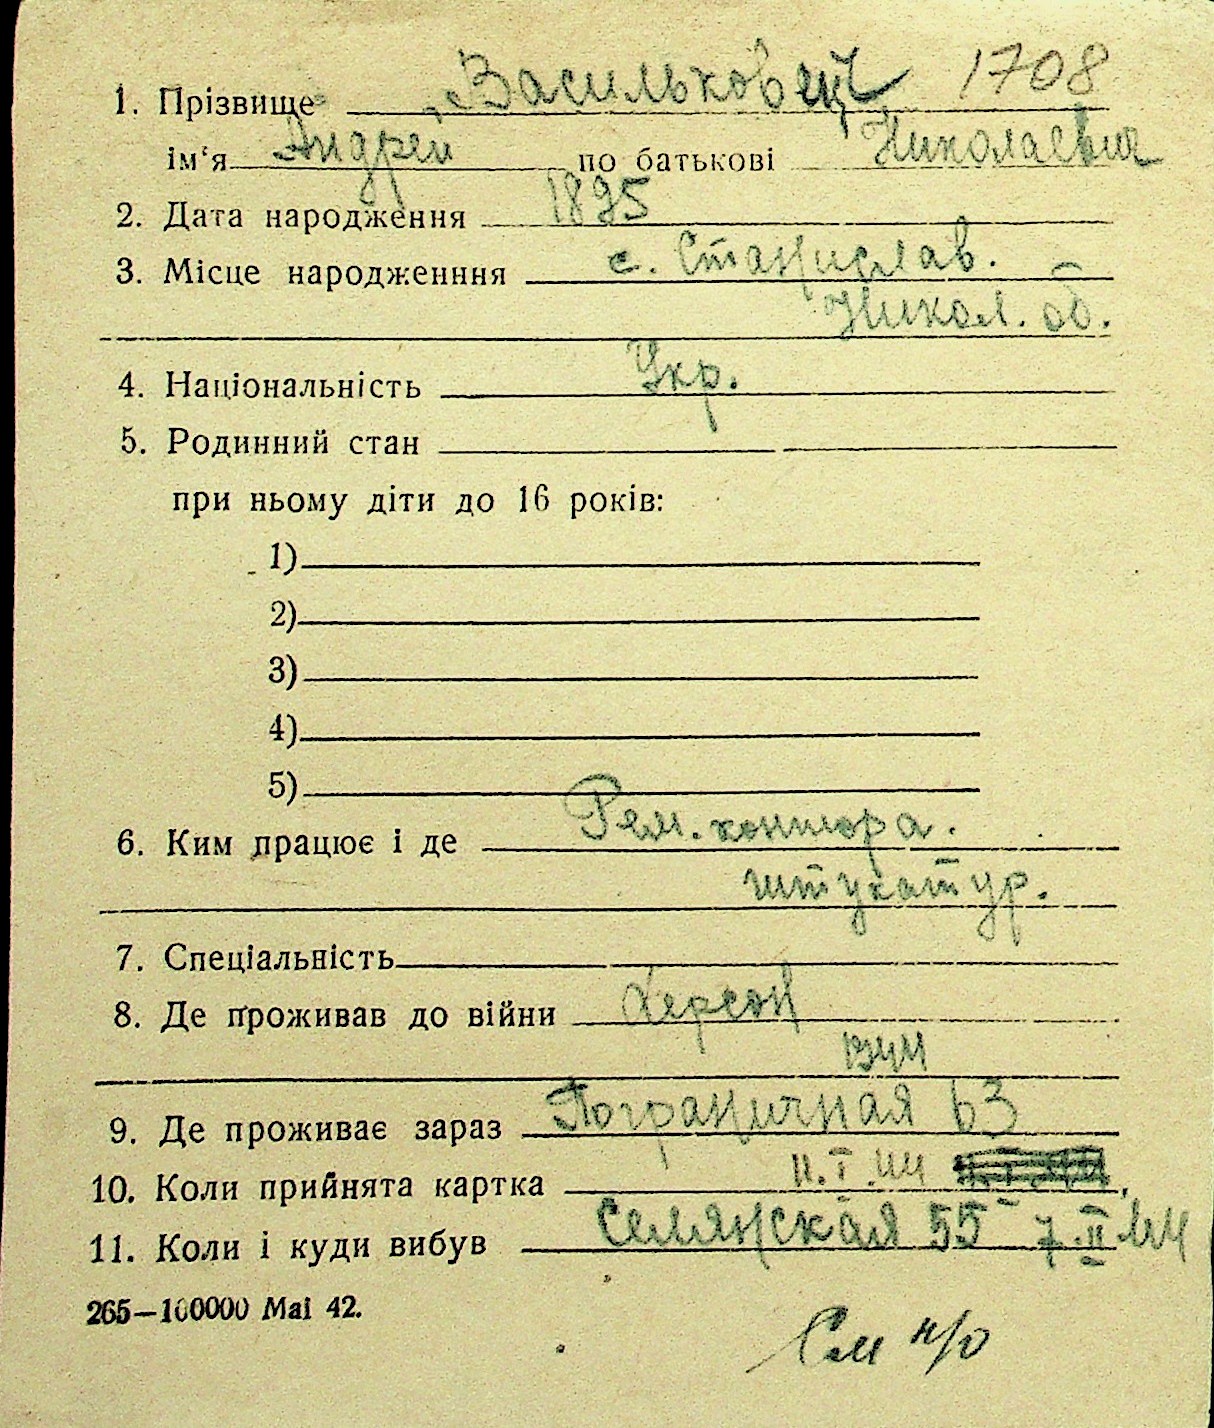 1. Прізвище Васильковец 1708
ім‘я Андрей по батькові Николаевич
2. Дата народження 1895
3. Місце народженння с. Станислав.
Никол. об.
4. Національність Укр.
5. Родинний стан
при ньому діти до 16 років:
1)
2)
3)
4)
5)
6. Ким працює і де Рем. контора.
штукатур.
7. Спеціальність
8. Де проживав до війни Херсон
1944
9. Де проживає зараз Пограничная 63
10. Коли прийнята картка 11.I.44
11. Коли і куди вибув Селянская 55 7.II 44
265—100000 Mai 42.
См н/о